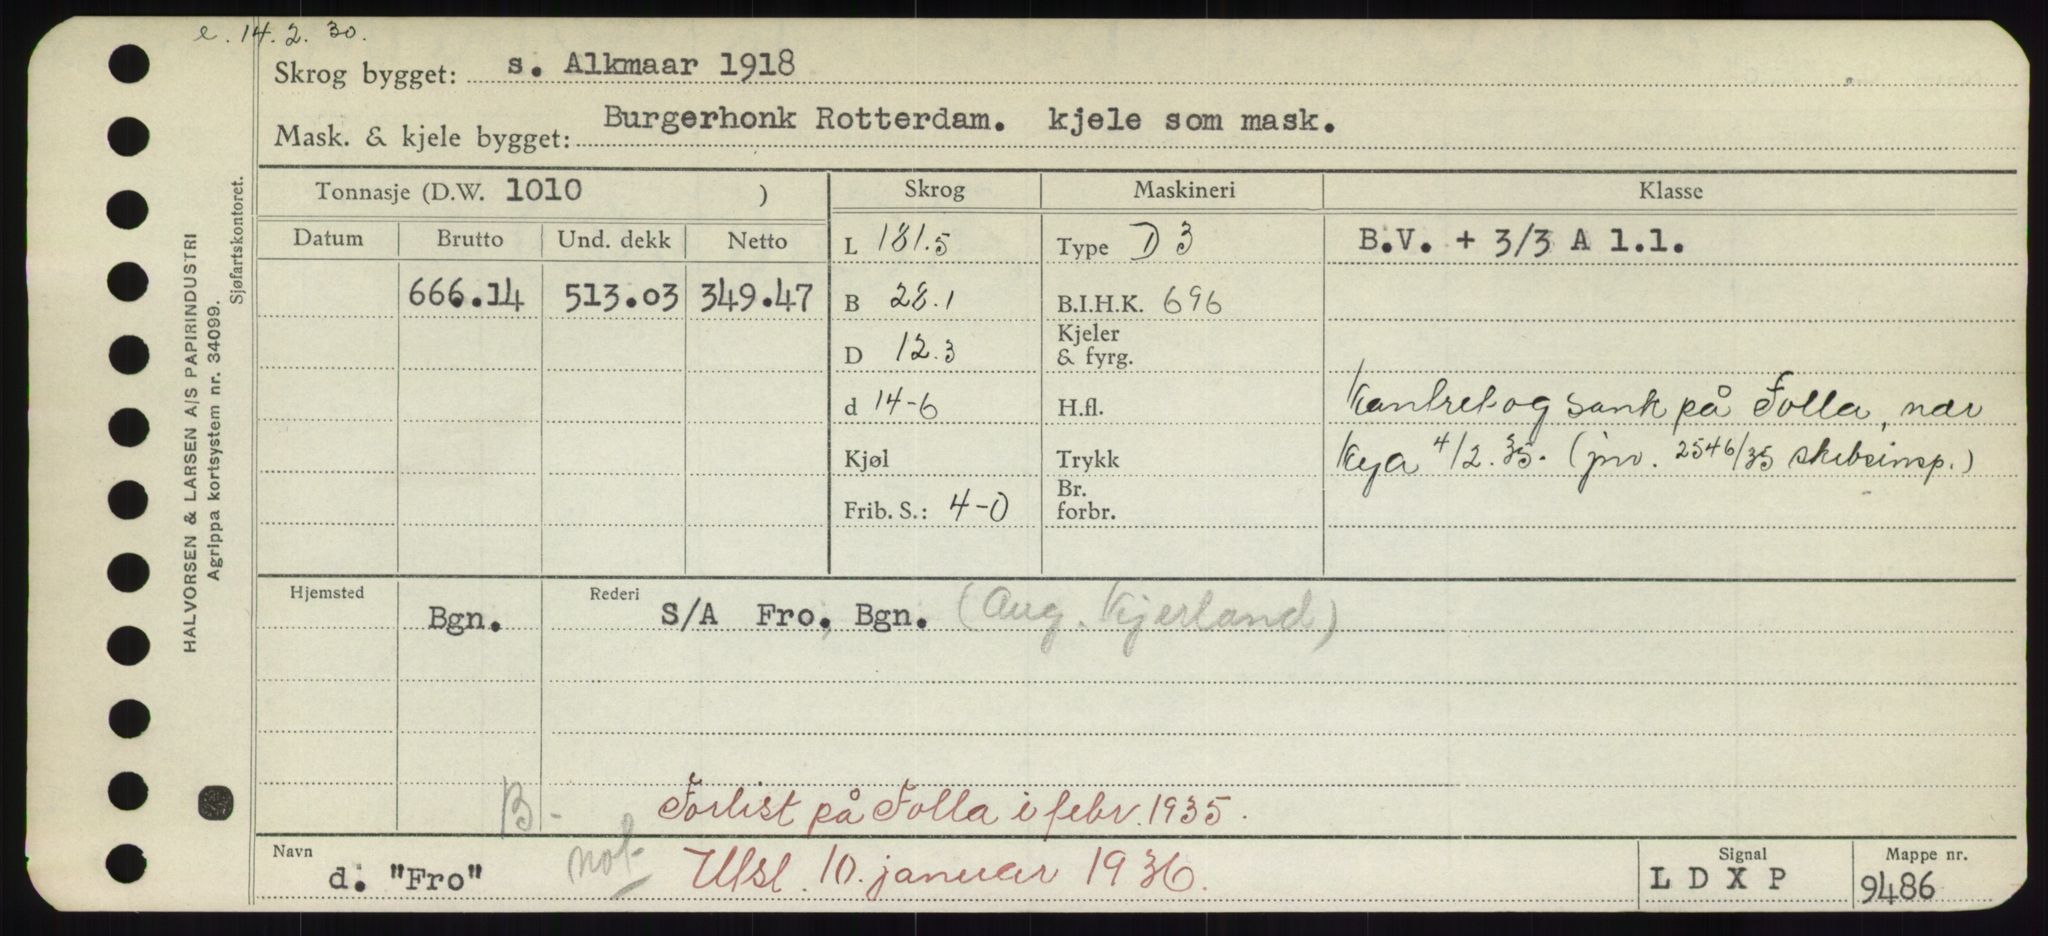 e. 14.2.30.
Skrog bygget: s. Alkmaar 1918
Mask. & kjele bygget: Burgerhonk Rotterdam. kjele som mask.
Tonnasje (D.W. 1010 )
Skrog
Maskineri
Klasse
Datum Brutto Und. dekk Netto
L 181.5
Type D 3
B.V. + 3/3 A 1.1.
666.14 513.03 349.47
B 28.1
B.I.H.K. 696
D 12.3
Kjeler
& fyrg.
d 14-6
H.fl.
Kantret og sank på Folla, nær
Kjøl
Trykk
Kya 4/2.35. (jnr. 2546/35 skibsinsp.)
Frib. S.: 4-0
Br.
forbr.
Hjemsted
Rederi
Bgn.
S/A Fro, Bgn. (Aug. Kjerland)
B-
Forlist på Folla i febr. 1935.
Navn
d. "Fro"
not
Utsl. 10. januar 1936.
Signal
L D X P
Mappe nr.
9486
HALVORSEN & LARSEN A/S PAPIRINDUSTRI
Agrippa kortsystem nr. 34099.
Sjøfartskontoret.